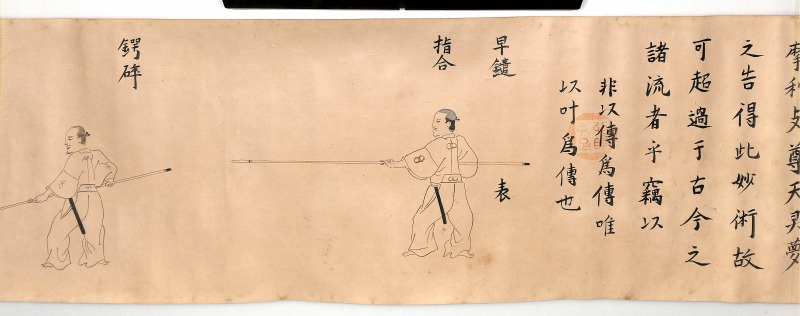 摩利支尊天灵夢
之告得此妙術故
可超過于古今之
諸流者乎竊以
非以傳為傳唯
以叶為傳也
早鑓
表
指合
鍔砕